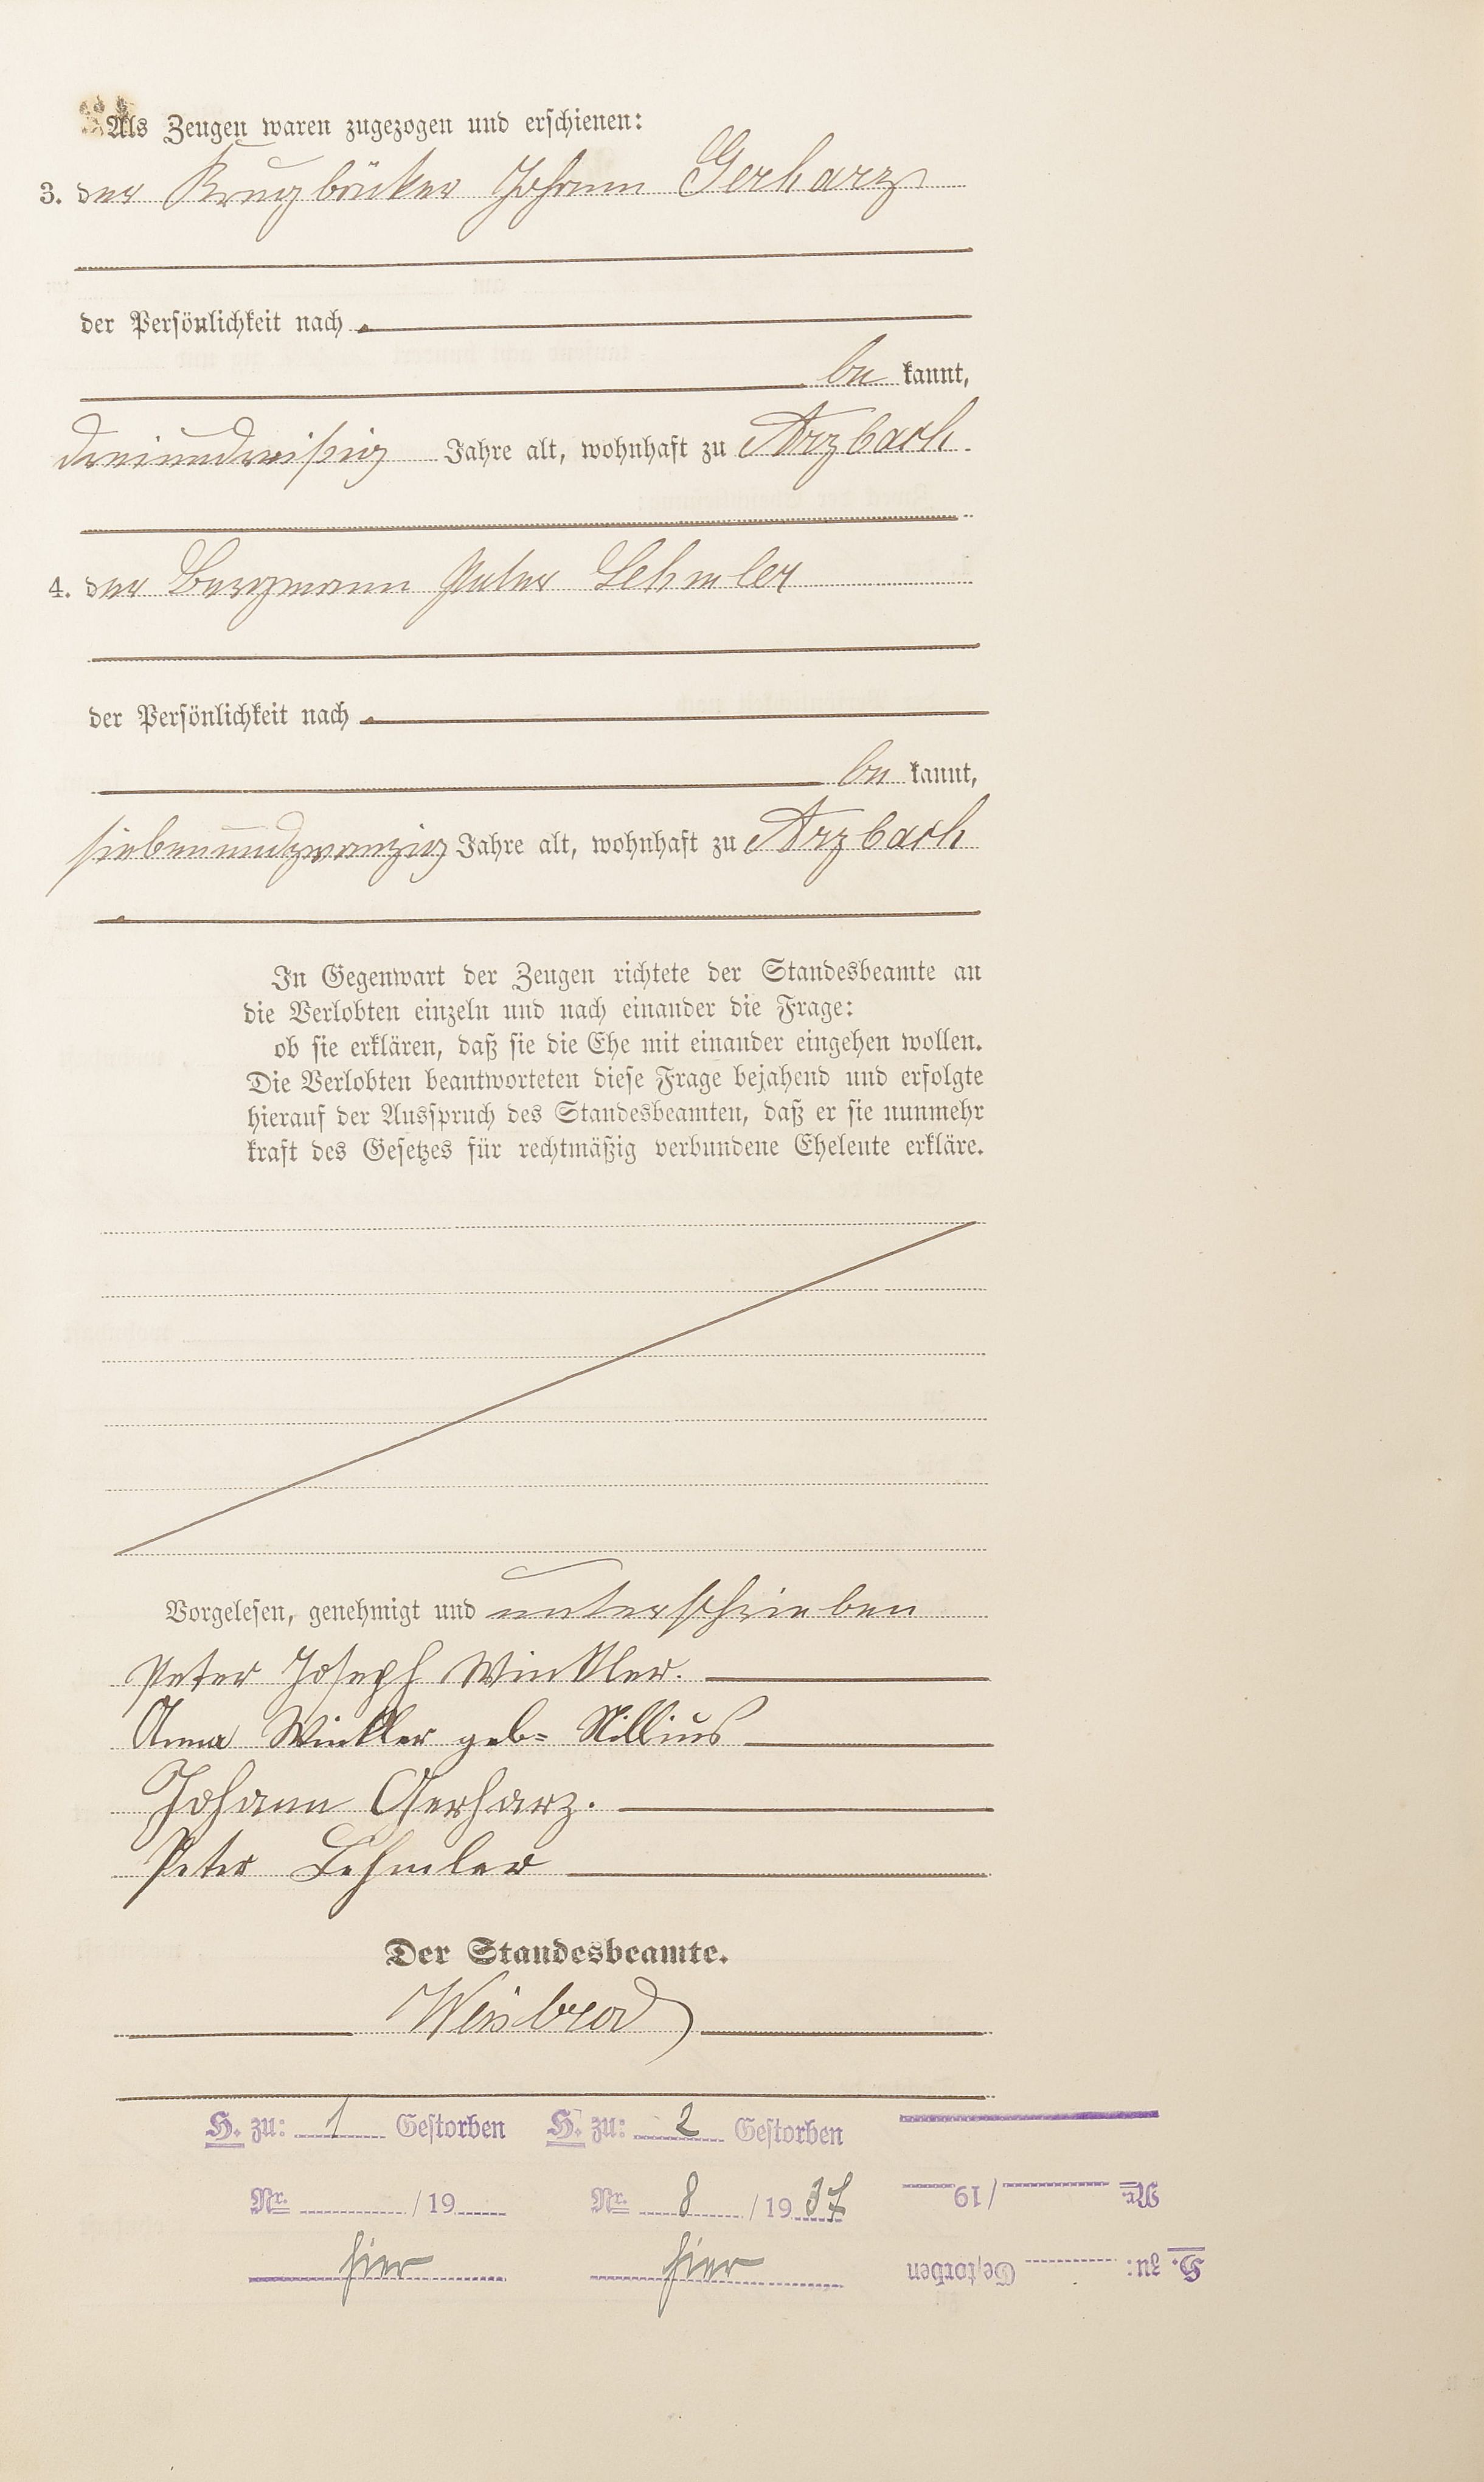 Als Zeugen waren zugezogen und erschienen:
3. der Krugbäcker Johann Gerharz
der Persönlichkeit nach
be kannt,
dreiundreißig Jahre alt, wohnhaft zu Arzbach.
4. der Bergmann Peter Lehmler
der Persönlichkeit nach
be kannt,
siebenundzwanzig Jahre alt, wohnhaft zu Arzbach
In Gegenwart der Zeugen richtete der Standesbeamte an
die Verlobten einzeln und nach einander die Frage:
ob sie erklären, daß sie die Ehe mit einander eingehen wollen.
Die Verlobten beantworteten diese Frage bejahend und erfolgte
hierauf der Ausspruch des Standesbeamten, daß er sie nunmehr
kraft des Gesetzes für rechtmäßig verbundene Eheleute erkläre.
Vorgelesen, genehmigt und unterschrieben
Peter Joseph Winkler.
Anna Winkler geb= Nillius
Johann Gerharz.
Peter Lehmler
Der Standesbeamte.
Weisbrod
H. zu: 1 Gestorben H. zu: 2 Gestorben
Nr. /19 Nr. 8 /19 37 Nr. /19
hier hier H. zu: Gestorben